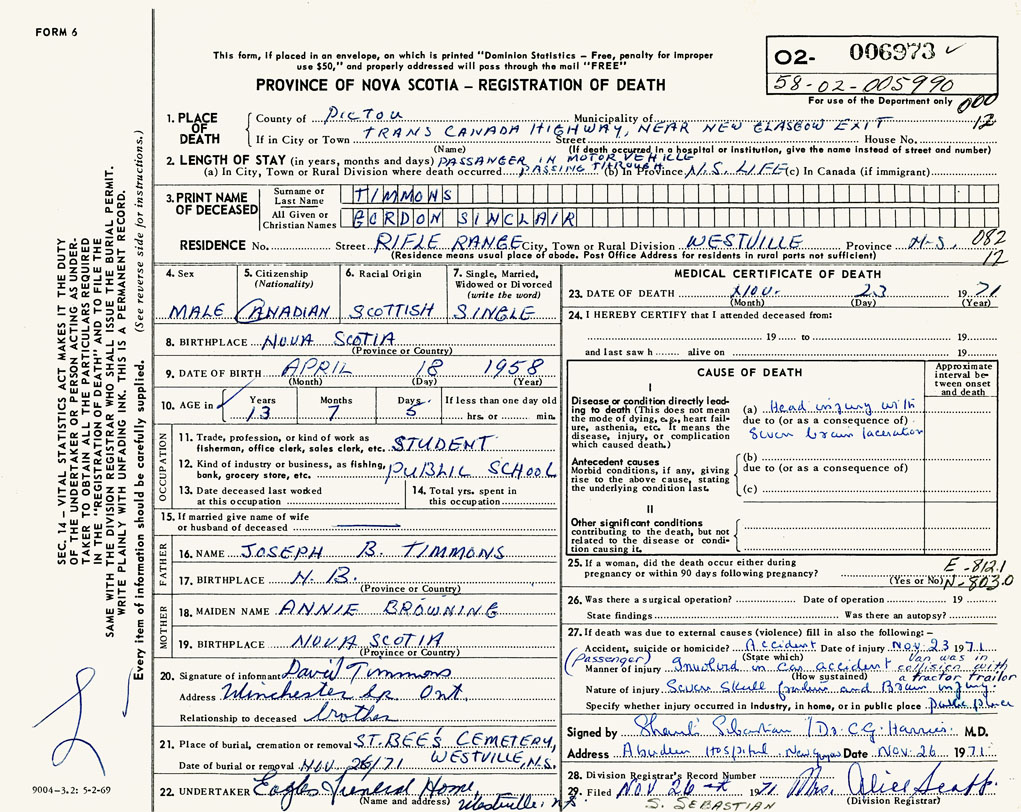 FORM 6
This form, if placed in an envelope, on which is printed "Dominion Statistics – Free, penalty for improper
use $50," and properly addressed will pass through the mail "FREE"
PROVINCE OF NOVA SCOTIA – REGISTRATION OF DEATH
02- 006973
58-02-005990
For use of the Department only 000
12
1. PLACE OF DEATH
County of PICTOU Municipality of
If in City or Town TRANS CANADA HIGHWAY, NEAR NEW GLASGOW EXIT Street House No.
(Name) (If death occurred in a hospital or institution, give the name instead of street and number)
2. LENGTH OF STAY (in years, months and days) PASSANGER IN MOTOR VEHICLE
(a) In City, Town or Rural Division where death occurred PASSING THROUGH (b) In Province N.S. LIFE (c) In Canada (if immigrant)
3. PRINT NAME OF DECEASED
Surname or Last Name TIMMONS
All Given or Christian Names GORDON SINCLAIR
RESIDENCE No. Street RIFLE RANGE City, Town or Rural Division WESTVILLE Province N.S. 082
(Residence means usual place of abode. Post Office Address for residents in rural parts not sufficient) 12
4. Sex
MALE
5. Citizenship (Nationality)
CANADIAN
6. Racial Origin
SCOTTISH
7. Single, Married, Widowed or Divorced (write the word)
SINGLE
8. BIRTHPLACE NOVA SCOTIA
(Province or Country)
9. DATE OF BIRTH APRIL 18 1958
(Month) (Day) (Year)
10. AGE in Years Months Days If less than one day old
13 7 5 hrs. or min.
OCCUPATION
11. Trade, profession, or kind of work as
fisherman, office clerk, sales clerk, etc. STUDENT
12. Kind of industry or business, as fishing,
bank, grocery store, etc. PUBLIC SCHOOL
13. Date deceased last worked
at this occupation
14. Total yrs. spent in
this occupation
15. If married give name of wife
or husband of deceased
FATHER
16. NAME JOSEPH B. TIMMONS
17. BIRTHPLACE N.B.
(Province or Country)
MOTHER
18. MAIDEN NAME ANNIE BROWNING
19. BIRTHPLACE NOVA SCOTIA
(Province or Country)
20. Signature of informant David Timmons
Address Winchester Sp Ont.
Relationship to deceased brother
21. Place of burial, cremation or removal ST. BEE'S CEMETERY,
Date of burial or removal NOV. 26/71 WESTVILLE, N.S.
22. UNDERTAKER Eagles Funeral Home
(Name and address) Westville, N.S.
MEDICAL CERTIFICATE OF DEATH
23. DATE OF DEATH NOV. 23 1971
(Month) (Day) (Year)
24. I HEREBY CERTIFY that I attended deceased from:
19 to 19
and last saw h alive on 19
CAUSE OF DEATH
Approximate interval between onset and death
I
Disease or condition directly leading to death (This does not mean the mode of dying, e.g., heart failure, asthenia, etc. It means the disease, injury, or complication which caused death.)
(a) Head injury with
due to (or as a consequence of)
Severe brain laceration
Antecedent causes
Morbid conditions, if any, giving rise to the above cause, stating the underlying condition last.
(b)
due to (or as a consequence of)
(c)
II
Other significant conditions
contributing to the death, but not related to the disease or condition causing it.
25. If a woman, did the death occur either during E-812.1
pregnancy or within 90 days following pregnancy?
(Yes or No) N-803.0
26. Was there a surgical operation? Date of operation 19
State findings Was there an autopsy?
27. If death was due to external causes (violence) fill in also the following:–
Accident, suicide or homicide? Accident Date of injury NOV 23 1971.
(Passenger) (State which) Van was in
Manner of injury Involved in car accident collision with
(How sustained) a tractor trailor
Nature of injury Severe Skull fracture and Brain injury.
Specify whether injury occurred in industry, in home, or in public place Public place
Signed by Sebastian / Dr. C.G. Harries. M.D.
Address Aberdeen Hospital, New Glasgow Date NOV 26 1971.
28. Division Registrar's Record Number
29. Filed NOV 26th 1971 Mrs. Alice Scapp.
S. SEBASTIAN (Division Registrar)
SEC. 14 – VITAL STATISTICS ACT MAKES IT THE DUTY
OF THE UNDERTAKER OR PERSON ACTING AS UNDER-
TAKER TO OBTAIN ALL THE PARTICULARS REQUIRED
IN THE "REGISTRATION OF DEATH" AND TO FILE THE
SAME WITH THE DIVISION REGISTRAR WHO SHALL ISSUE THE BURIAL PERMIT.
WRITE PLAINLY WITH UNFADING INK. THIS IS A PERMANENT RECORD.
Every item of information should be carefully supplied. (See reverse side for instructions.)
9004-3.2: 5-2-69